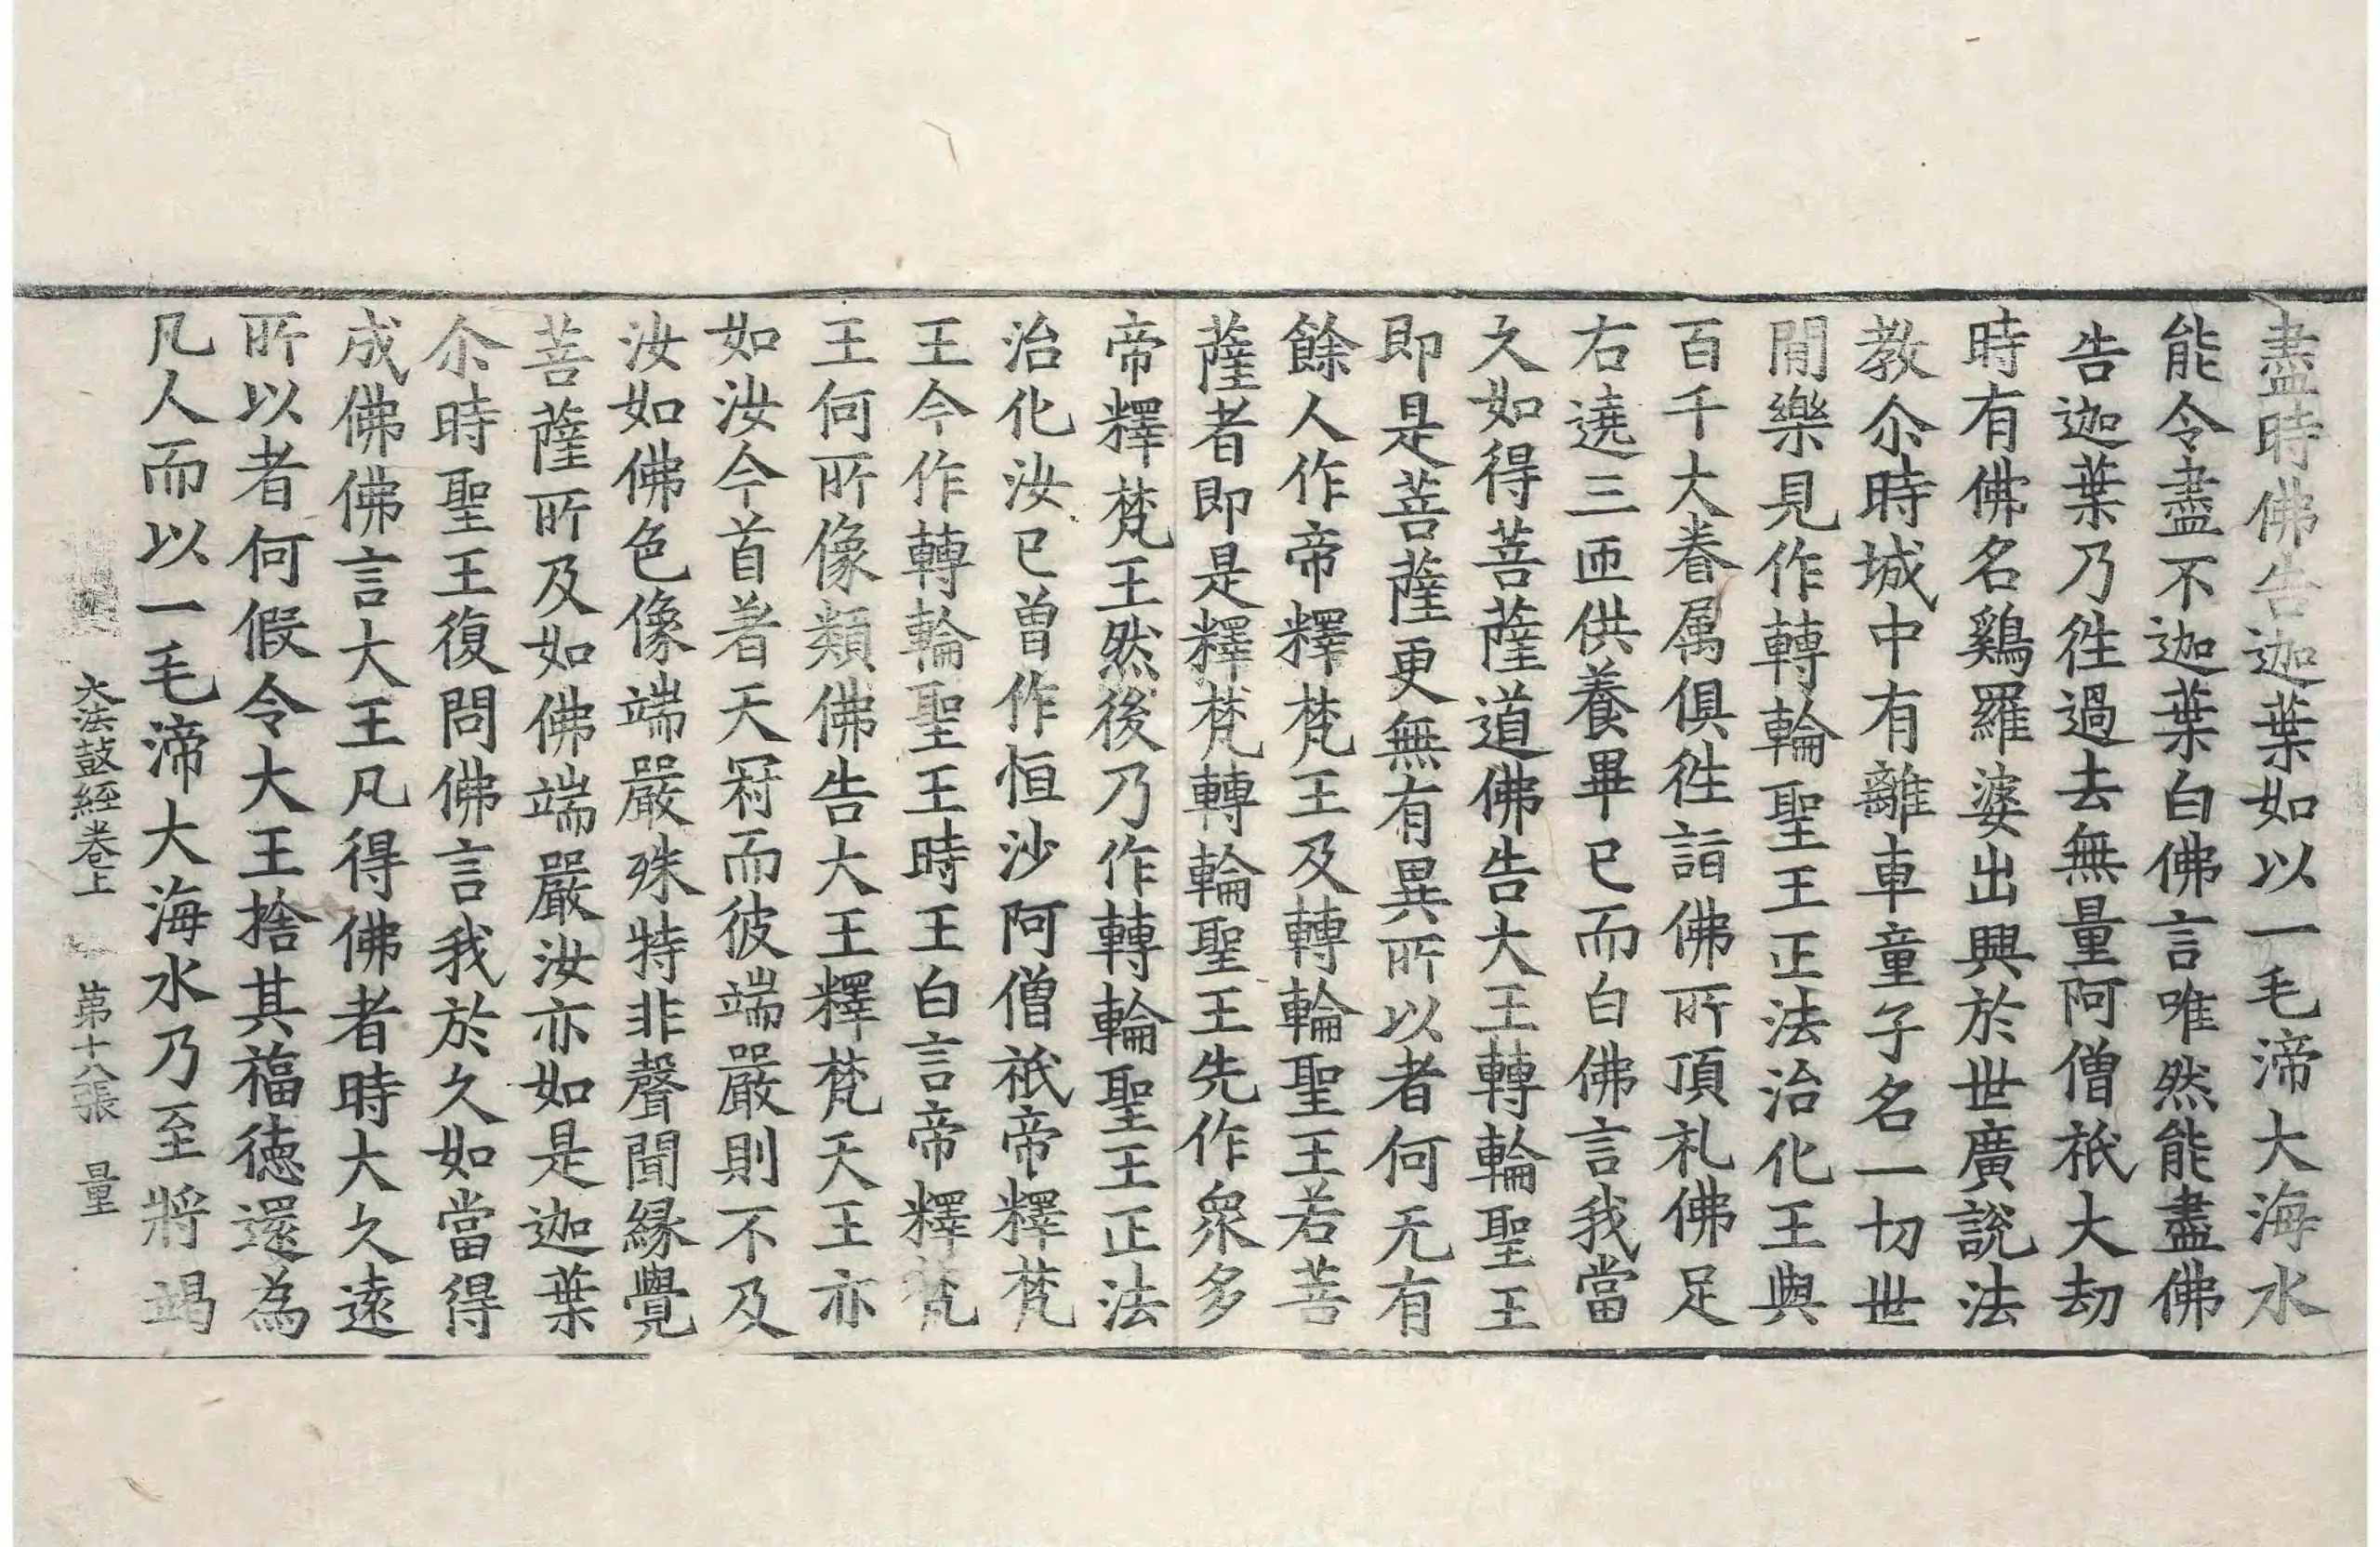 盡時佛告迦葉如以一毛渧大海水
能令盡不迦葉白佛言唯然能盡佛
告迦葉乃徃過去無量阿僧祇大劫
時有佛名鷄羅婆出興於世廣說法
教尒時城中有離車童子名一切世
閒樂見作轉輪聖王正法治化王與
百千大眷属俱徃詣佛所頂礼佛足
右遶三匝供養畢已而白佛言我當
久如得菩薩道佛告大王轉輪聖王
即是菩薩更無有異所以者何无有
餘人作帝釋梵王及轉輪聖王若菩
薩者即是釋梵轉輪聖王先作衆多
帝釋梵王然後乃作轉輪聖王正法
治化汝已曽作恒沙阿僧祇帝釋梵
王今作轉輪聖王時王白言帝釋梵
王何所像類佛告大王釋梵天王亦
如汝今首著天冠而彼端嚴則不及
汝如佛色像端嚴殊特非聲聞縁覺
菩薩所及如佛端嚴汝亦如是迦葉
尒時聖王復問佛言我於久如當得
成佛佛言大王凡得佛者時大久遠
所以者何假令大王捨其福德還為
凡人而以一毛渧大海水乃至將竭
大法鼓經卷上 第十八張 量